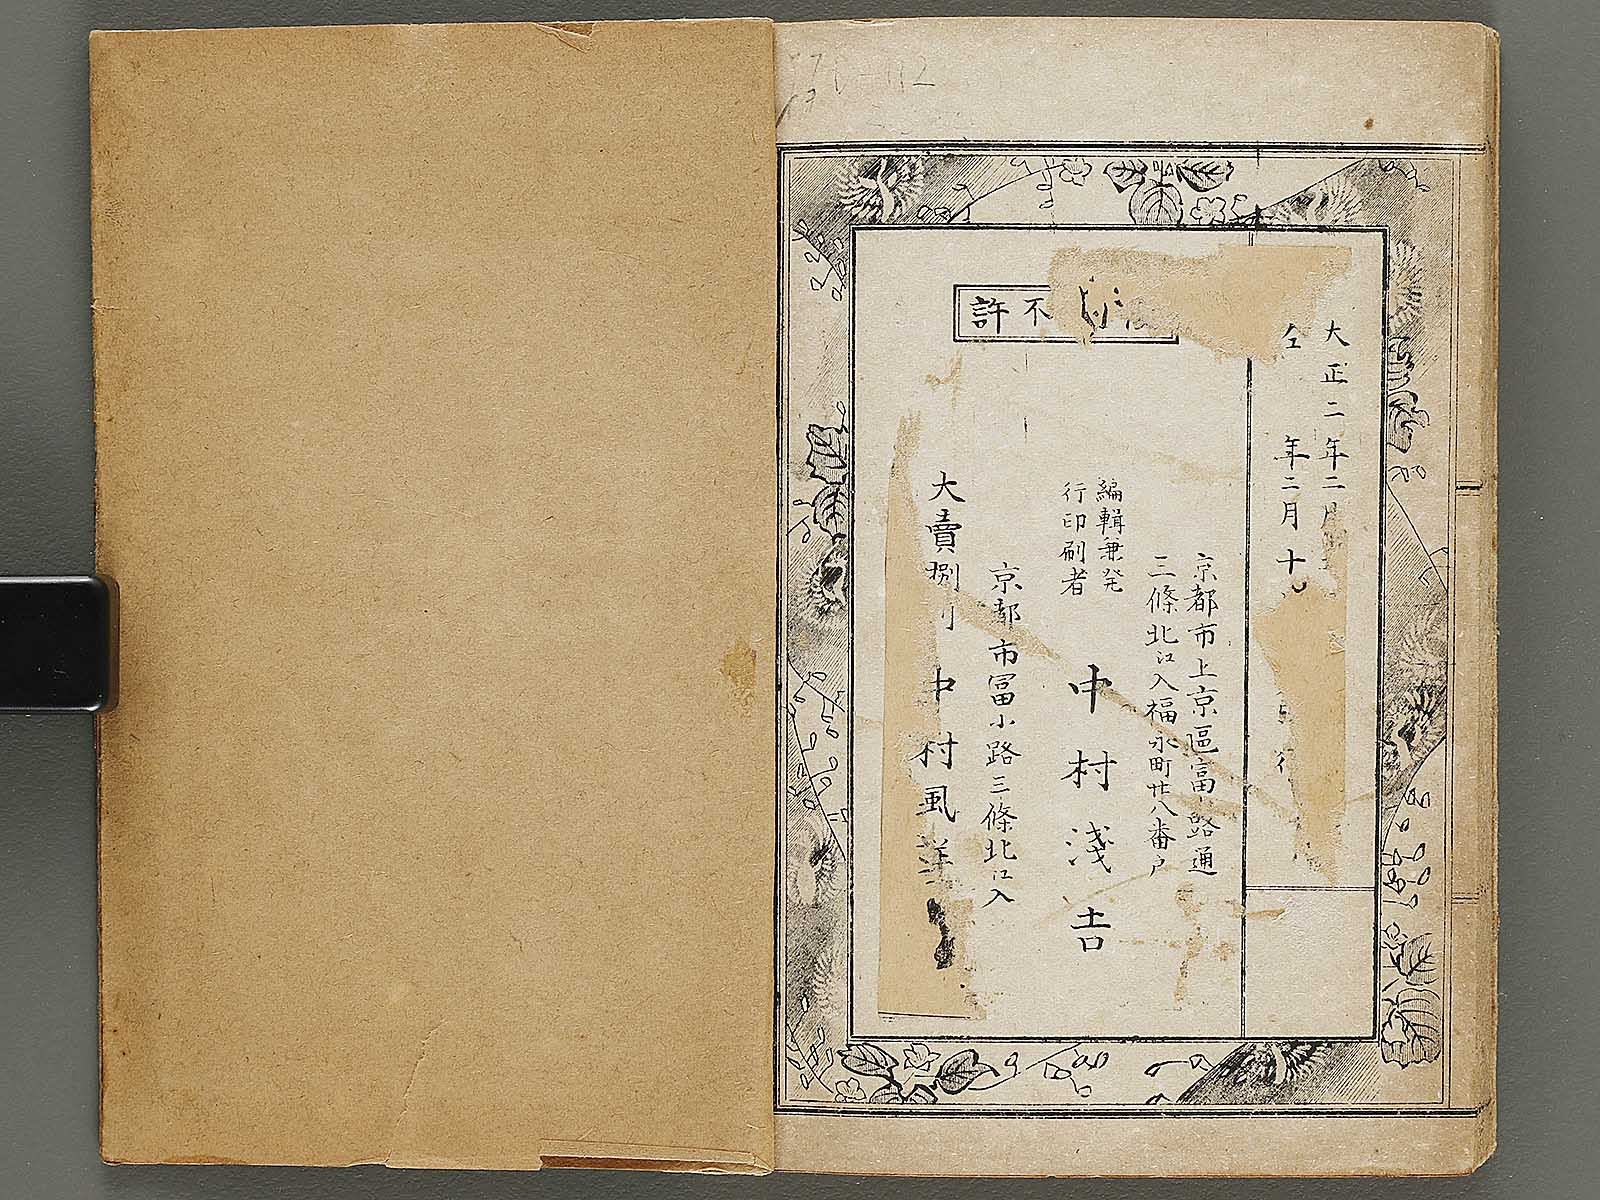 大正二年二月
仝年二月十
行
不許
京都市上京區富路通
三條北江入福永町廿八番戸
編輯兼発
行印刷者
中村淺吉
京都市冨小路三條北江入
大賣捌
中村風祥